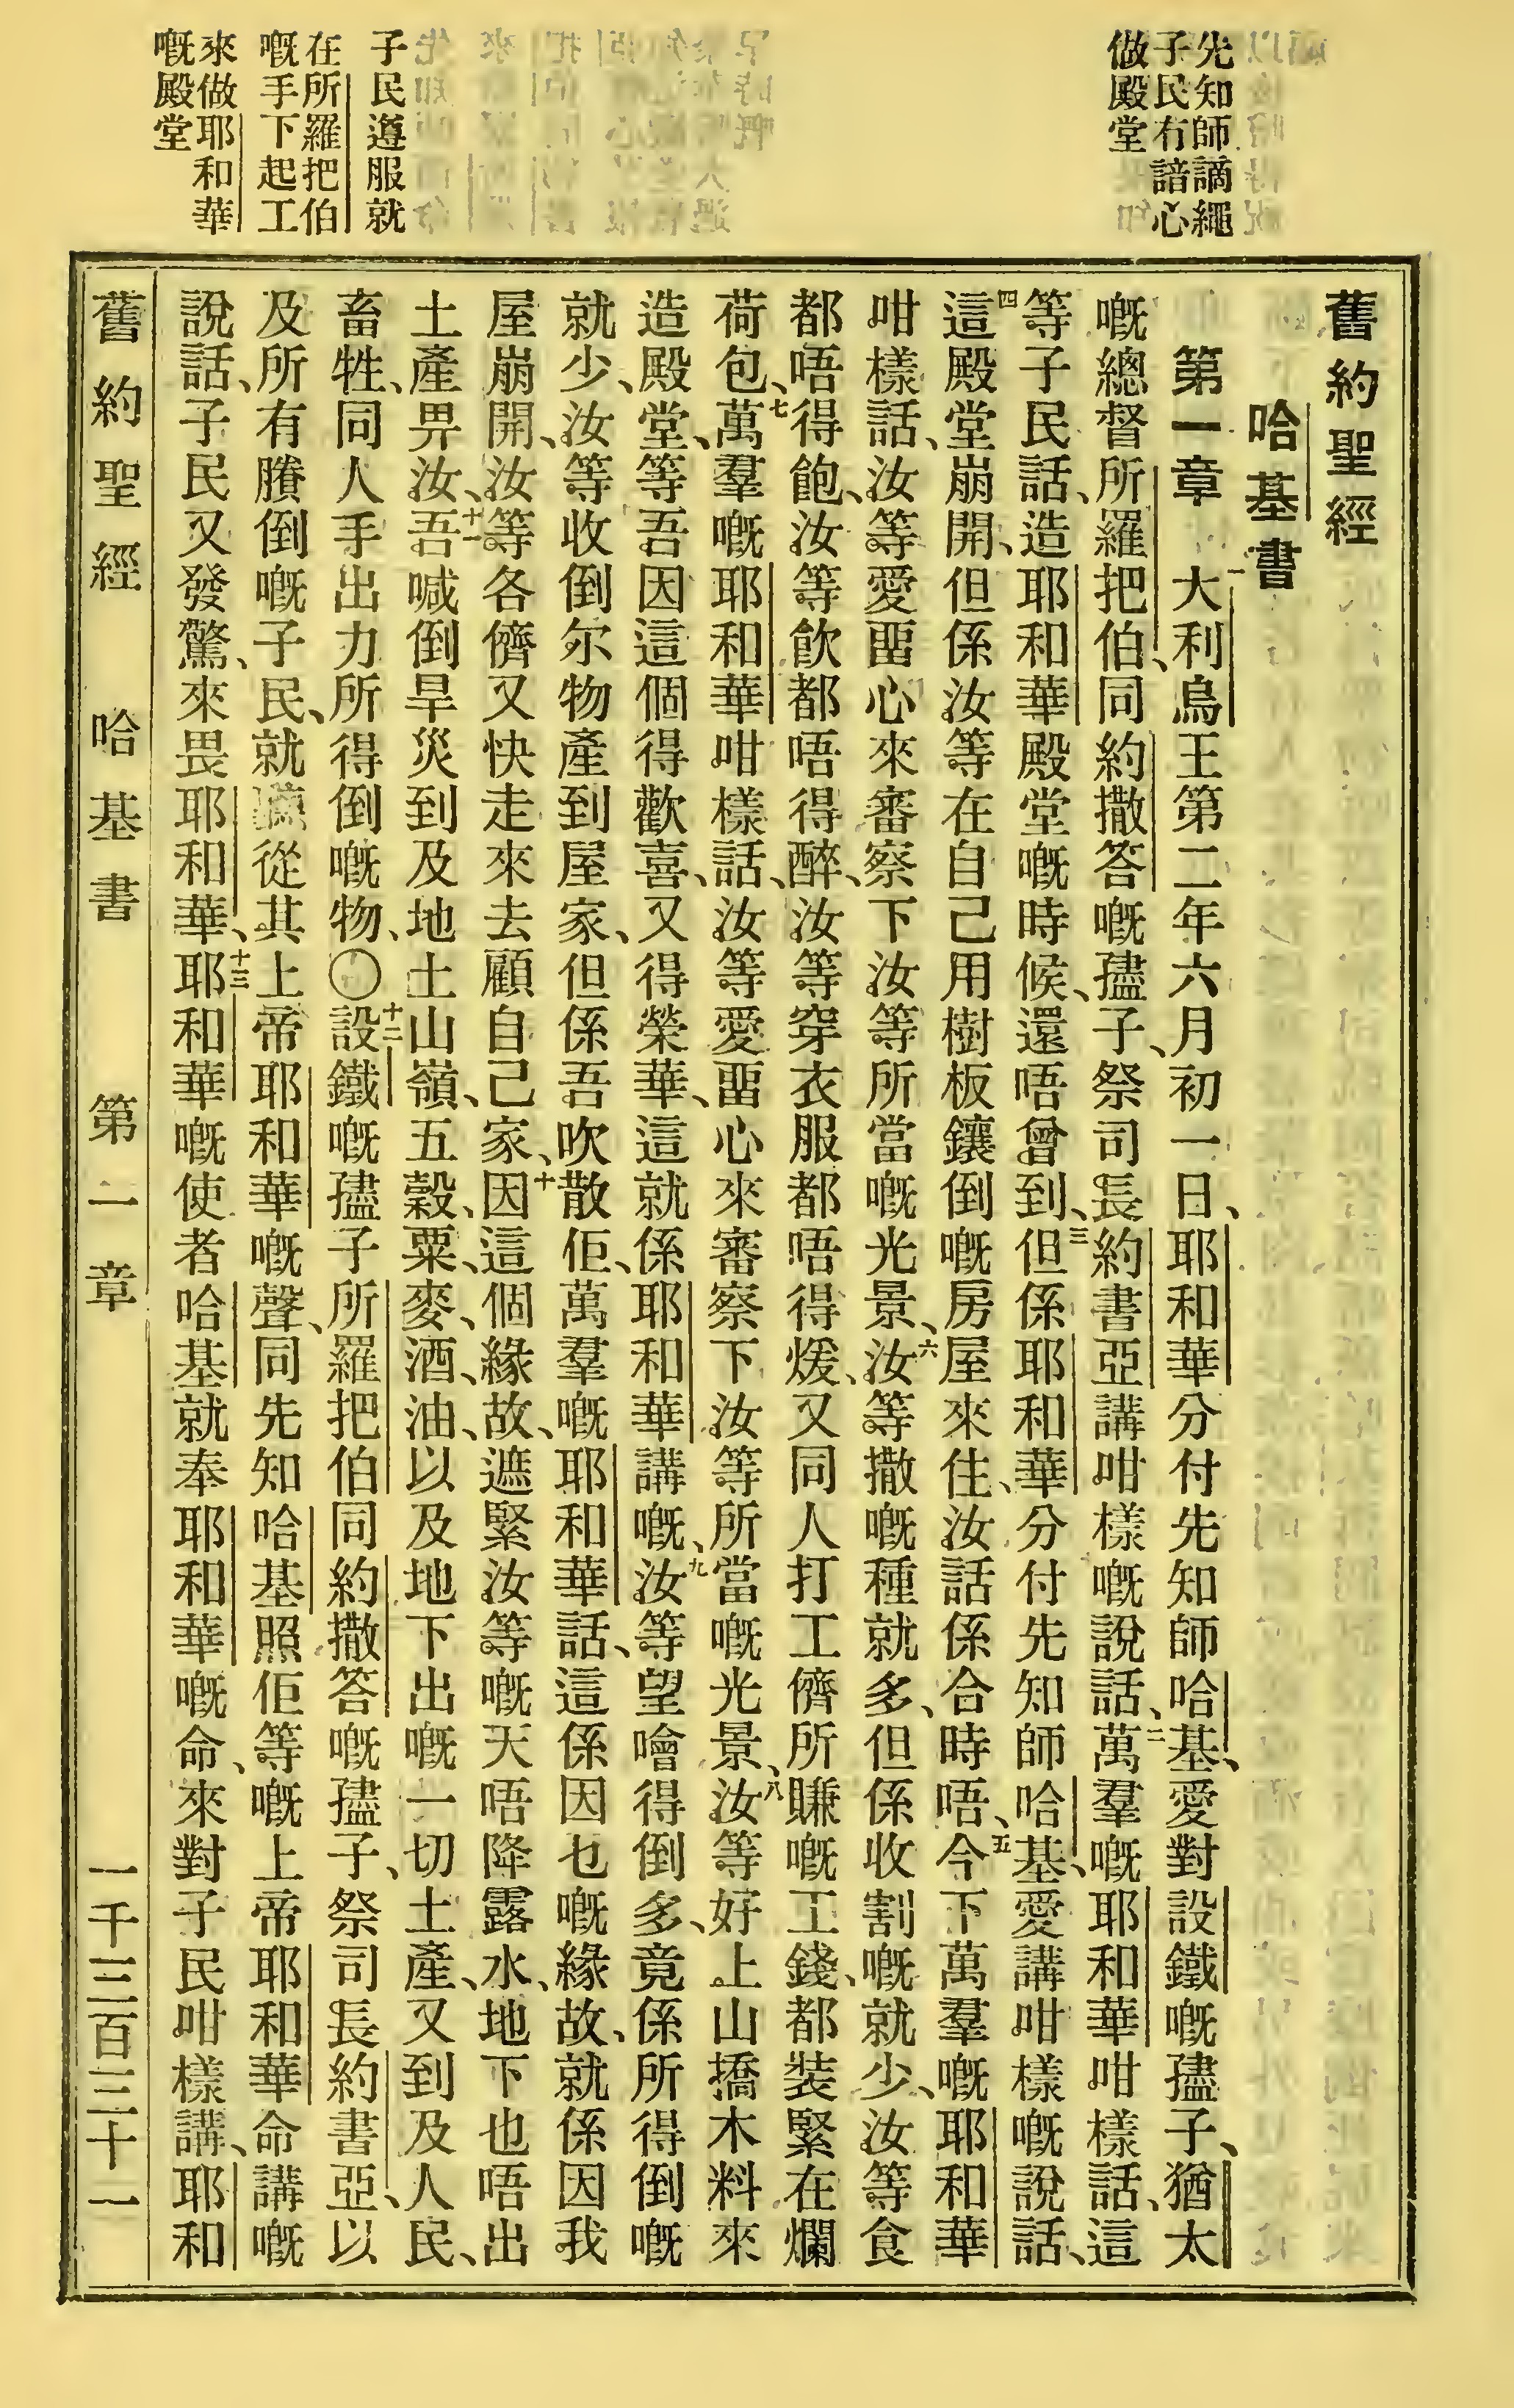 先知師謫繩
子民冇諳心
做殿堂
子民遵服就
在所羅把伯
嘅手下起工
來做耶和華
嘅殿堂
舊約聖經
哈基書
第一章 一大利烏王第二年六月初一日、耶和華分付先知師哈基、愛對設鐵嘅孻子、猶太
嘅總督所羅把伯、同約撒答嘅孻子、祭司長約書亞講咁樣嘅說話、二萬羣嘅耶和華咁樣話、這
等子民話、造耶和華殿堂嘅時候、還唔曾到、三但係耶和華分付先知師哈基、愛講咁樣嘅說話、
四這殿堂崩開、但係汝等在自己用樹板鑲倒嘅房屋來住、汝話係合時唔、五今下萬羣嘅耶和華
咁樣話、汝等愛畱心來審察下汝等所當嘅光景、六汝等撒嘅種就多、但係收割嘅就少、汝等食
都唔得飽、汝等飲都唔得醉、汝等穿衣服都唔得煖、又同人打工儕所賺嘅工錢、都裝緊在爛
荷包、七萬羣嘅耶和華咁樣話、汝等愛畱心來審察下汝等所當嘅光景、八汝等好上山撟木料來
造殿堂、等吾因這個得歡喜、又得榮華、這就係耶和華講嘅、九汝等望噲得倒多、竟係所得倒嘅
就少、汝等收倒尔物產到屋家、但係吾吹散佢、萬羣嘅耶和華話、這係因乜嘅緣故、就係因我
屋崩開、汝等各儕又快走來去顧自己家、十因這個緣故、遮緊汝等嘅天唔降露水、地下也唔出
土產畀汝、十一吾喊倒旱災到及地土山嶺、五穀、粟、麥、酒、油、以及地下出嘅一切土產、又到及人民、
畜牲、同人手出力所得倒嘅物、〇十二設鐵嘅孻子所羅把伯同約撒答嘅孻子、祭司長約書亞、以
及所有賸倒嘅子民、就聽從其上帝耶和華嘅聲、同先知哈基照佢等嘅上帝耶和華命講嘅
說話、子民又發驚、來畏耶和華、十三耶和華嘅使者哈基就奉耶和華嘅命、來對子民咁樣講、耶和
舊約聖經 哈基書 第一章 一千三百三十一